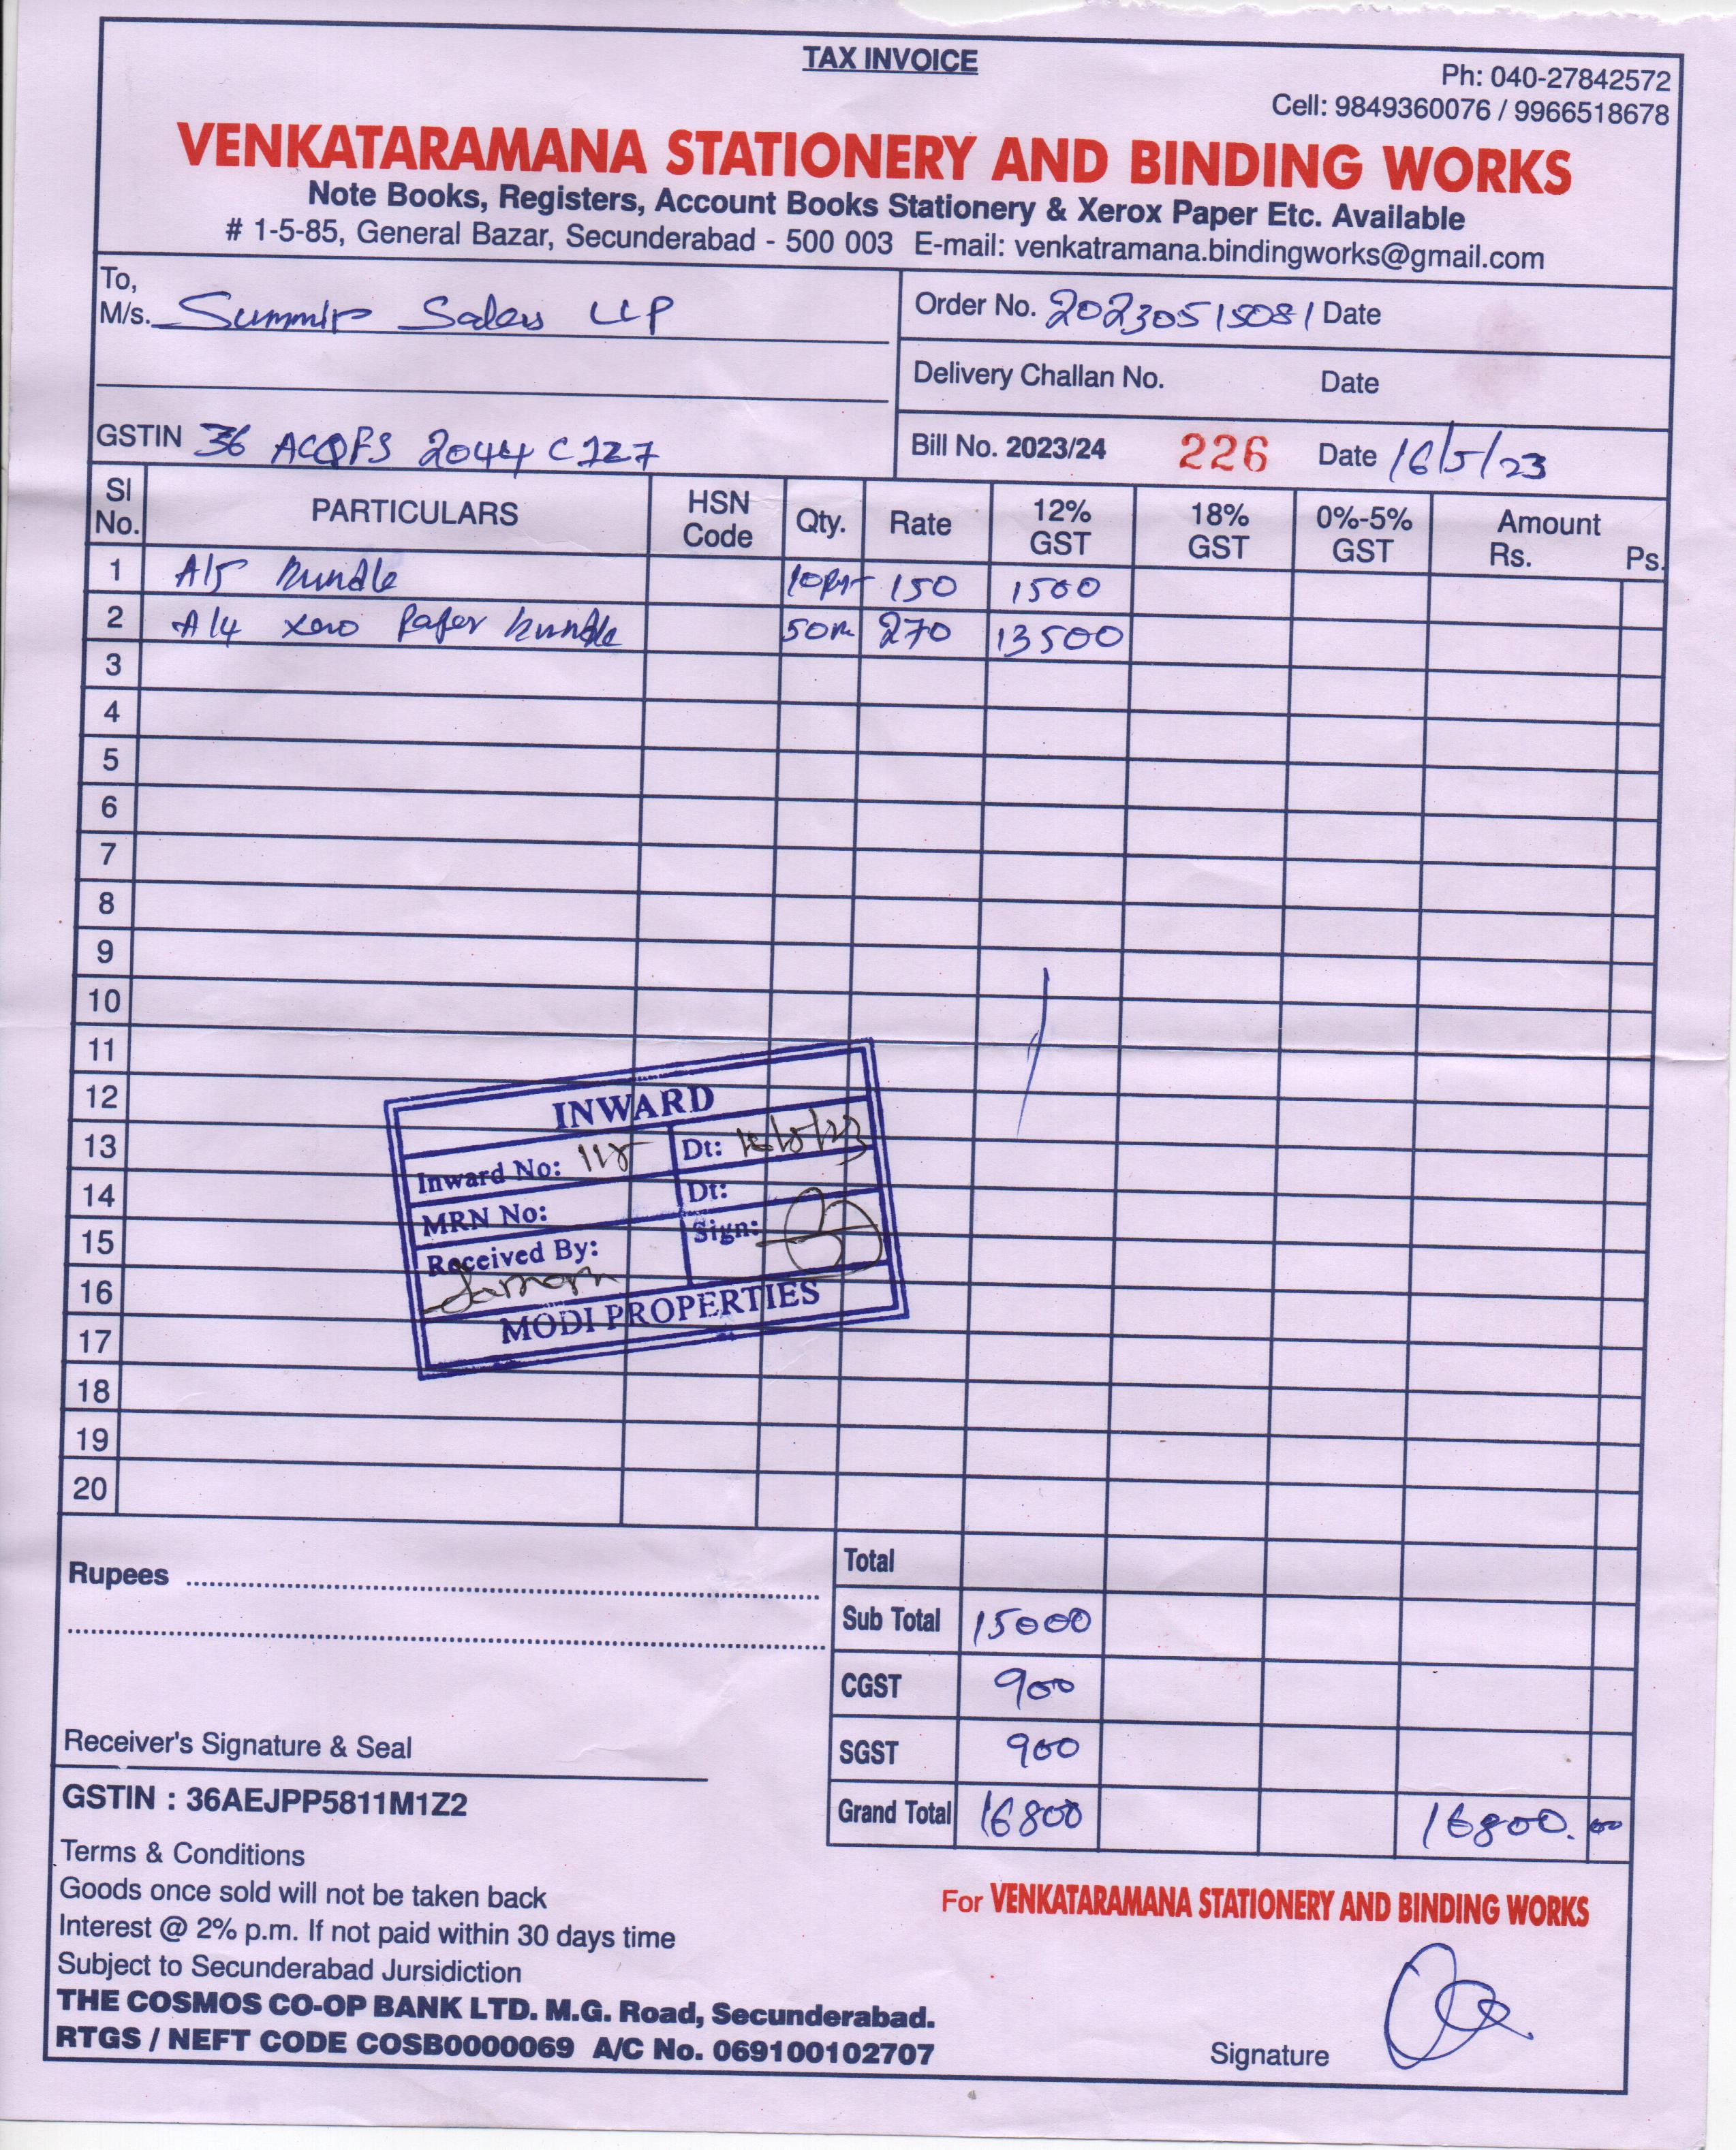 TAX INVOICE
Ph: 040-27842572
Cell: 9849360076 / 9966518678
VENKATARAMANA STATIONERY AND BINDING WORKS
Note Books, Registers, Account Books Stationery & Xerox Paper Etc. Available
# 1-5-85, General Bazar, Secunderabad - 500 003 E-mail: venkatramana.bindingworks@gmail.com
To,
M/s. Summit Sales LLP
Order No. 20230515081 Date
Delivery Challan No. Date
GSTIN 36 ACQFS 2044 C1Z7
Bill No. 2023/24 226 Date 16/5/23
Sl No. PARTICULARS HSN Code Qty. Rate 12% GST 18% GST 0%-5% GST Amount Rs. Ps.
1 A/5 bundle 150 1500
2 A/4 Xero Paper bundle 270 13500
3
4
5
6
7
8
9
10
11
12
13
14
15
16
17
18
19
20
INWARD
Inward No: Dt:
MRN No: Dt:
Received By: Sign:
MODI PROPERTIES
Rupees
Total
Sub Total 15000
CGST 900
SGST 900
Grand Total 16800 16800.00
Receiver's Signature & Seal
GSTIN : 36AEJPP5811M1Z2
Terms & Conditions
Goods once sold will not be taken back
Interest @ 2% p.m. If not paid within 30 days time
Subject to Secunderabad Jursidiction
THE COSMOS CO-OP BANK LTD. M.G. Road, Secunderabad.
RTGS / NEFT CODE COSB0000069 A/C No. 069100102707
For VENKATARAMANA STATIONERY AND BINDING WORKS
Signature